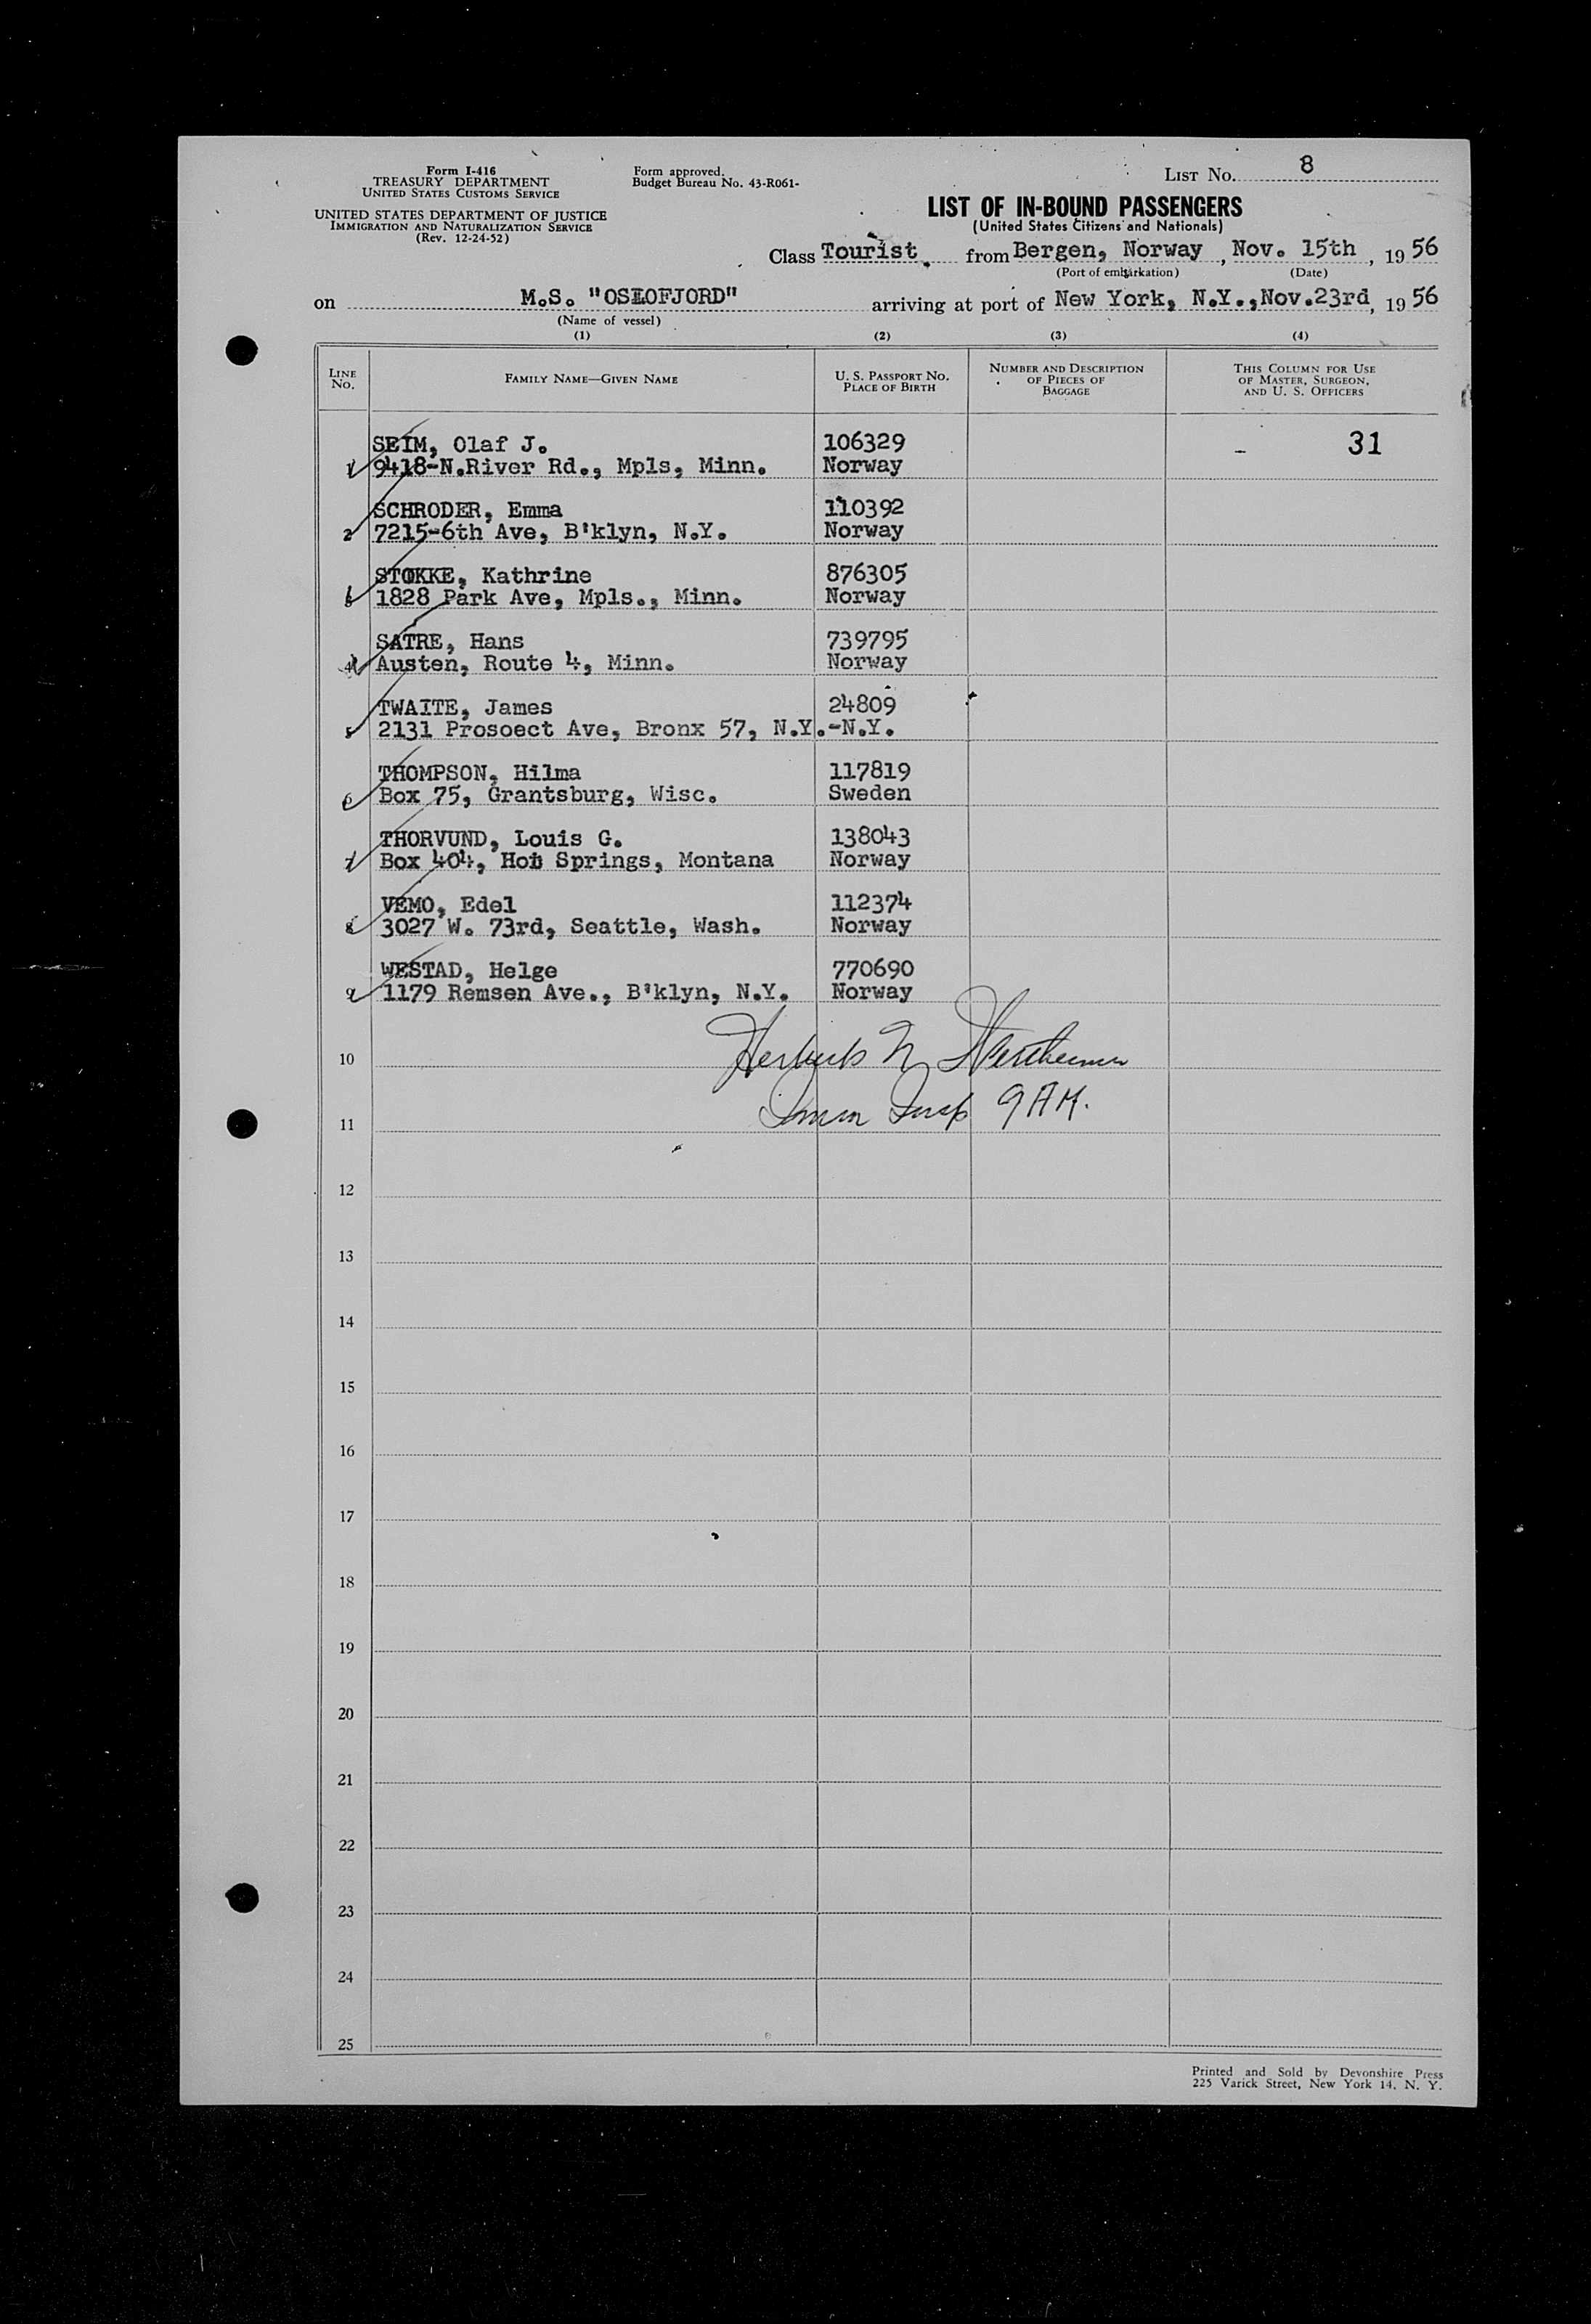 Form I-416
TREASURY DEPARTMENT
UNITED STATES CUSTOMS SERVICE
UNITED STATES DEPARTMENT OF JUSTICE
IMMIGRATION AND NATURALIZATION SERVICE
(Rev. 12-24-52)
Form approved.
Budget Bureau No. 43-R061-
LIST NO. 8
LIST OF IN-BOUND PASSENGERS
(United States Citizens and Nationals)
Class Tourist from Bergen, Norway, Nov. 15th, 19 56
(Port of embarkation) (Date)
on M.S. "OSLOFJORD" arriving at port of New York, N.Y.,Nov.23rd, 19 56
(Name of vessel)
(1) (2) (3) (4)
LINE NO. FAMILY NAME—GIVEN NAME U. S. PASSPORT NO. PLACE OF BIRTH NUMBER AND DESCRIPTION OF PIECES OF BAGGAGE THIS COLUMN FOR USE OF MASTER, SURGEON, AND U. S. OFFICERS
SEIM, Olaf J. 106329 - 31
1 9418-N.River Rd., Mpls, Minn. Norway
SCHRODER, Emma 110392
2 7215-6th Ave, B'klyn, N.Y. Norway
STOKKE, Kathrine 876305
3 1828 Park Ave, Mpls., Minn. Norway
SATRE, Hans 739795
4 Austen, Route 4, Minn. Norway
TWAITE, James 24809
5 2131 Prosoect Ave, Bronx 57, N.Y.-N.Y.
THOMPSON, Hilma 117819
6 Box 75, Grantsburg, Wisc. Sweden
THORVUND, Louis G. 138043
7 Box 404, Hot Springs, Montana Norway
VEMO, Edel 112374
8 3027 W. 73rd, Seattle, Wash. Norway
WESTAD, Helge 770690
9 1179 Remsen Ave., B'klyn, N.Y. Norway
10 Herbert N
11 Imm Insp 9 AM.
12
13
14
15
16
17
18
19
20
21
22
23
24
25
Printed and Sold by Devonshire Press
225 Varick Street, New York 14, N. Y.